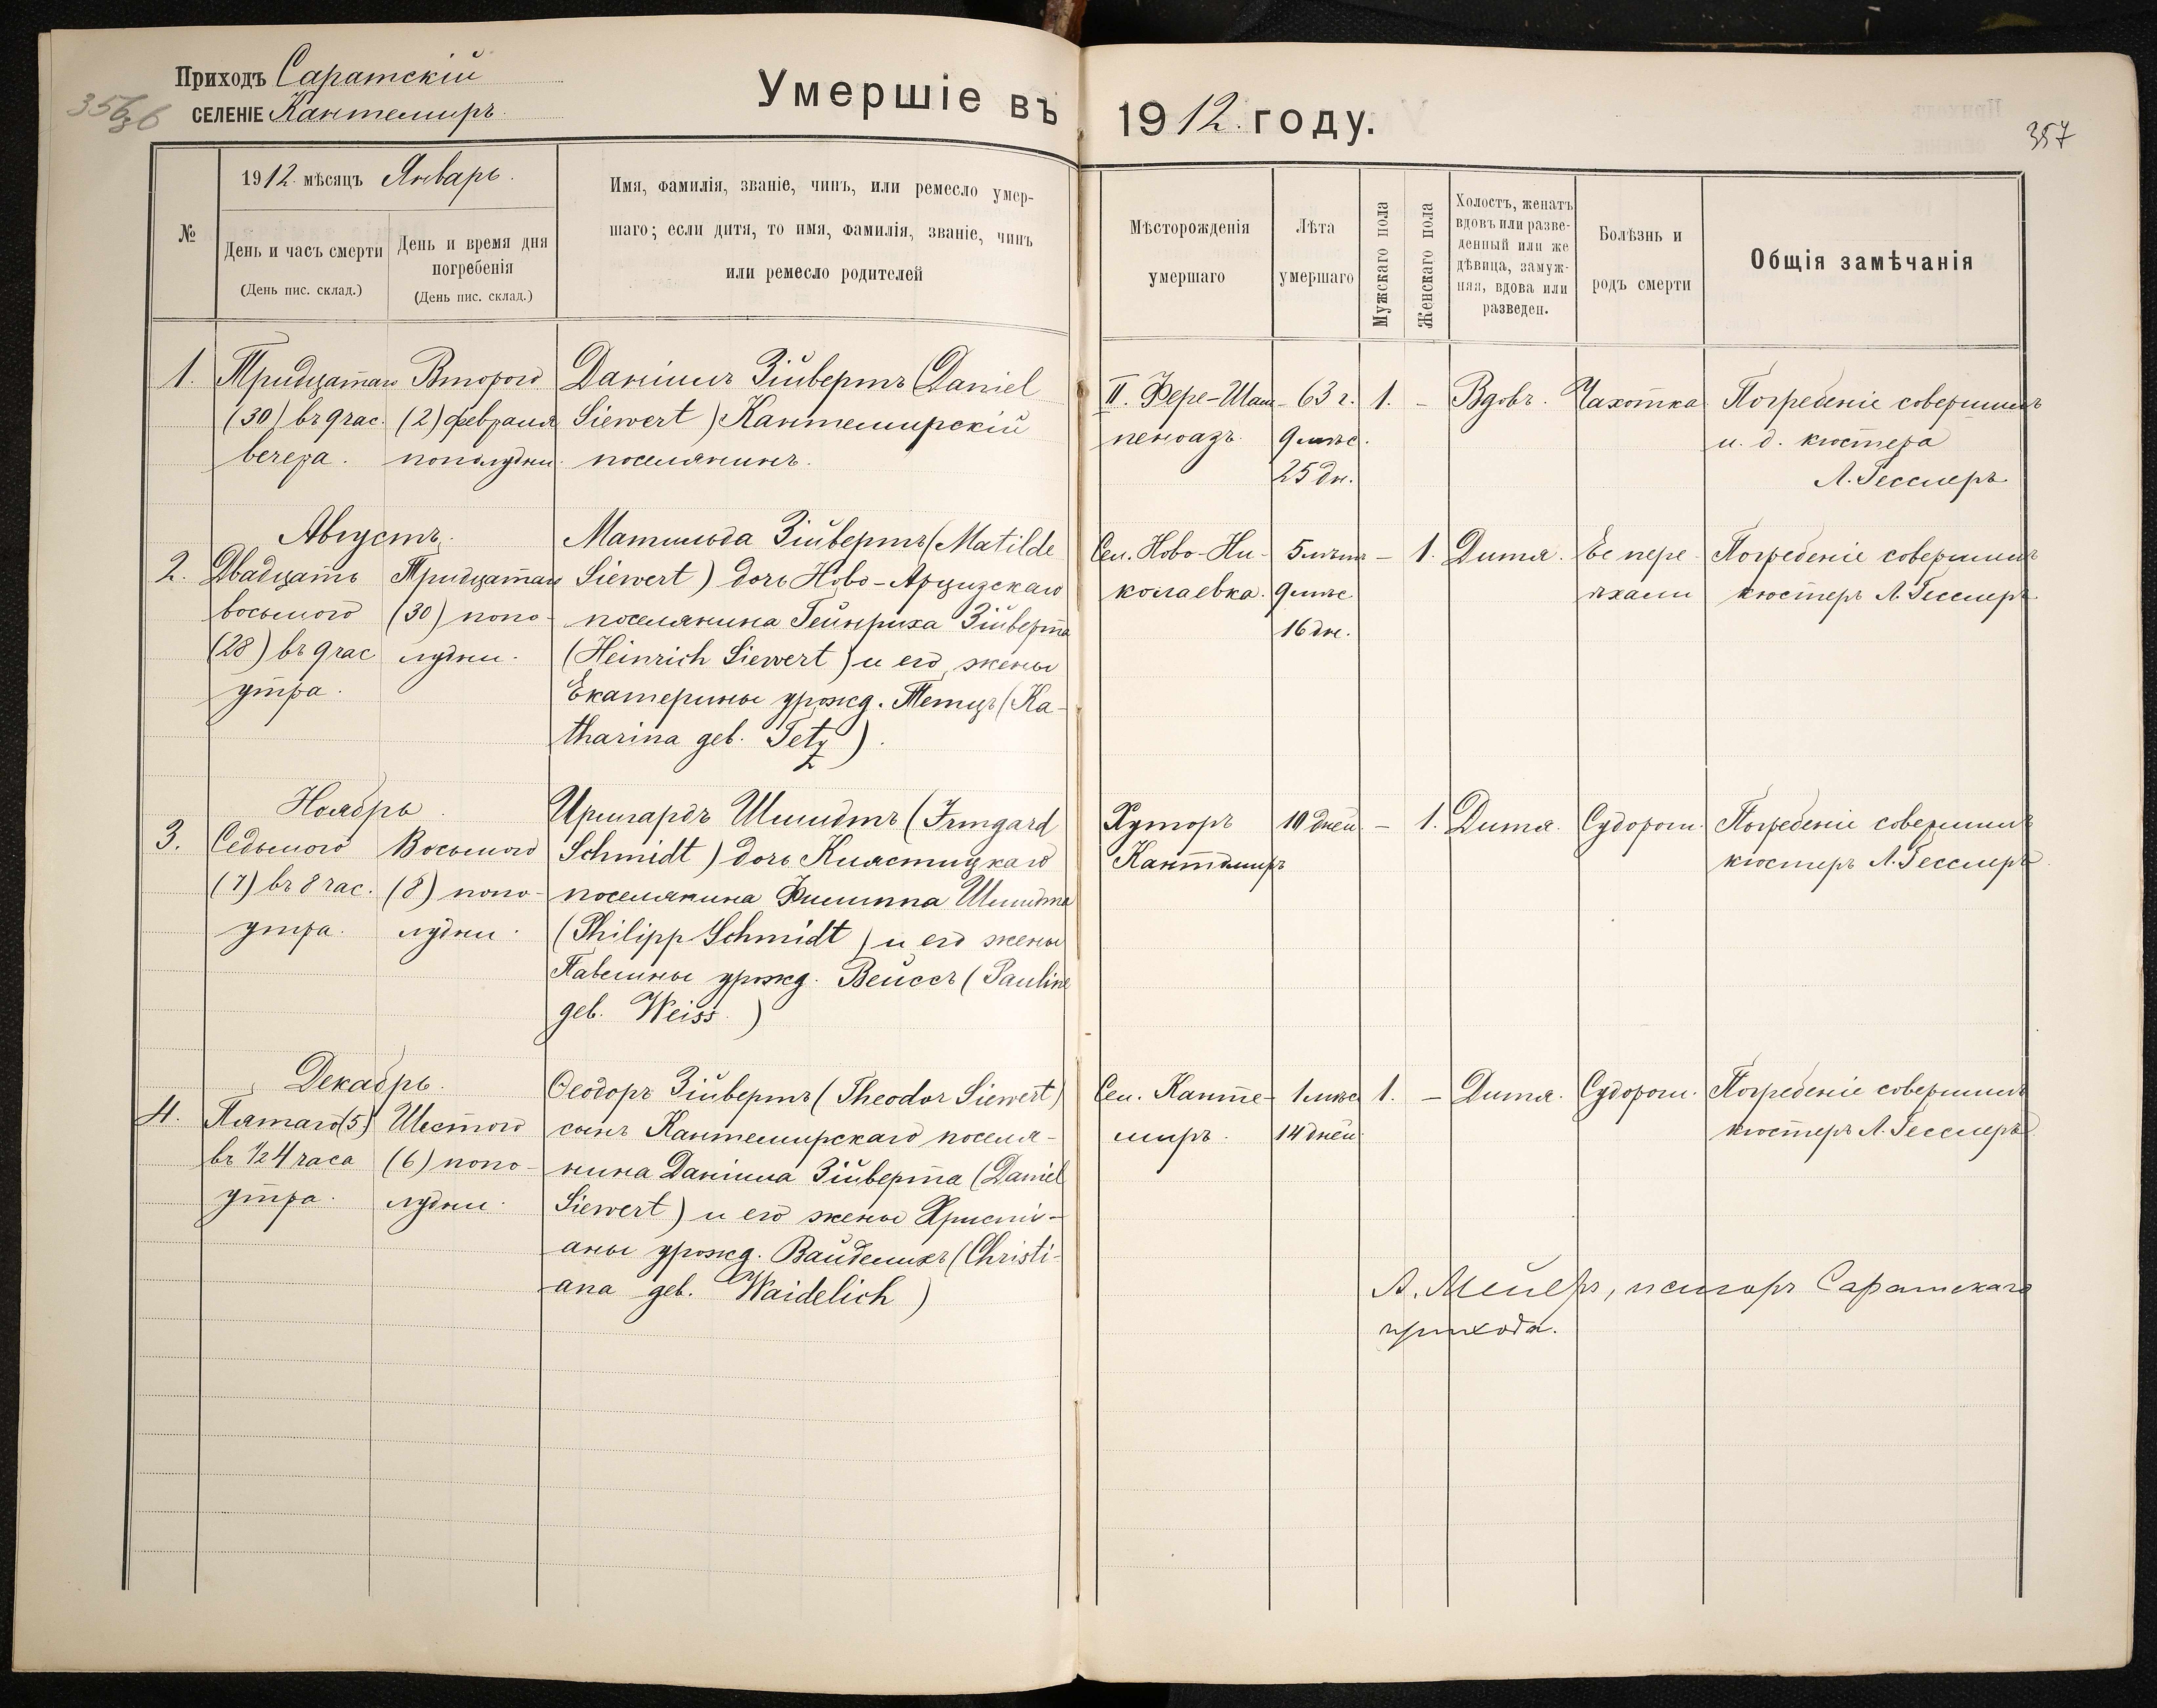 Приходъ Саратскій
СЕЛЕНІЕ Кантемиръ.
Умершіе въ 1912 году.
357
№
1912 мѣсяцъ Январь.
День и часъ смерти
(День пис. склад.)
День и время дня
погребенія
(День пис. склад.)
Имя, фамилія, званіе, чинъ, или ремесло умер-
шаго; если дитя, то имя, фамилія, званіе, чинъ
или ремесло родителей
Мѣсторожденія
умершаго
Лѣта
умершаго
Мужскаго пола
Женскаго пола
Холостъ, женатъ
вдовъ или разве-
денный или же
дѣвица, замуж-
няя, вдова или
разведен.
Болѣзнь и
родъ смерти
Общія замѣчанія
1.
Тридцатаго
(30) въ 9 час.
вечера.
Второго
(2) февраля
пополудни.
Даніилъ Зійвертъ (Daniel
Siewert) Кантемирскій
поселянинъ.
II. Фере-Шам-
пенуазъ.
63 г.
9 мѣс.
25 дн.
1.
-
Вдовъ.
Чахотка
Погребеніе совершилъ
и. д. кюстера
Л. Гесслеръ
Августъ.
2.
Двадцать
восьмого
(28) въ 9 час
утра.
Тридцатаго
(30) попо-
лудни.
Матильда Зійвертъ (Matilde
Siewert) дочь Ново-Арцизскаго
поселянина Гейнриха Зійверта
(Heinrich Siewert) и его жены
Екатерины урожд. Тетцъ (Ka-
tharina geb. Tetz).
Сел. Ново-Ни-
колаевка.
5 лѣтъ
9 мѣс
16 дн.
-
1.
Дитя.
Ее пере-
ѣхали
Погребеніе совершилъ
кюстеръ Л. Гесслеръ.
Ноябрь.
3.
Седьмого
(7) въ 8 час.
утра.
Восьмого
(8) попо-
лудни.
Ирмгардъ Шмидтъ (Irmgard
Schmidt) дочь Клястицкаго
поселянина Филиппа Шмидта
(Philipp Schmidt) и его жены
Павелины урожд. Вейссъ (Pauline
geb. Weiss.)
Хуторъ
Кантемиръ
10 дней.
-
1.
Дитя.
Судороги.
Погребеніе совершилъ
кюстеръ Л. Гесслеръ.
Декабрь.
4.
Пятаго (5)
въ 1/2 4 часа
утра.
Шестого
(6) попо-
лудни.
Ѳеодоръ Зійвертъ (Theodor Siewert)
сынъ Кантемирскаго поселя-
нина Даніила Зійверта (Daniel
Siewert) и его жены Христі-
аны урожд. Вайделихъ (Christi-
ana geb. Waidelich)
Сел.Канте-
миръ.
1 мѣс
14 дней.
1.
-
Дитя.
Судороги.
Погребеніе совершилъ
кюстеръ Л. Гесслеръ
А. Мейеръ, пасторъ Саратскаго
прихода.